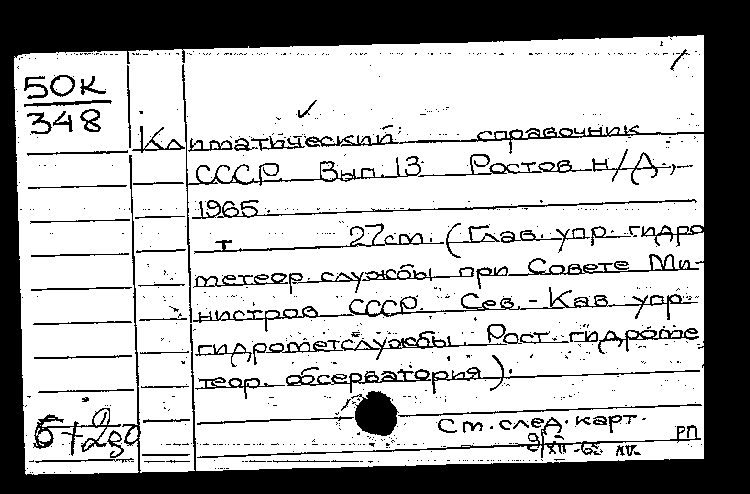 50К
348
Климатический справочник
СССР. Вып. 13 Ростов н/Д.,
1965.
т. 27см. (Глав. упр. гидро
метеор. службы при Совете Ми-
нистров СССР. Сев.-Кав. упр.
гидрометслужбы. Рост. гидроме
теор. обсерватория).
См. след. карт.
РП